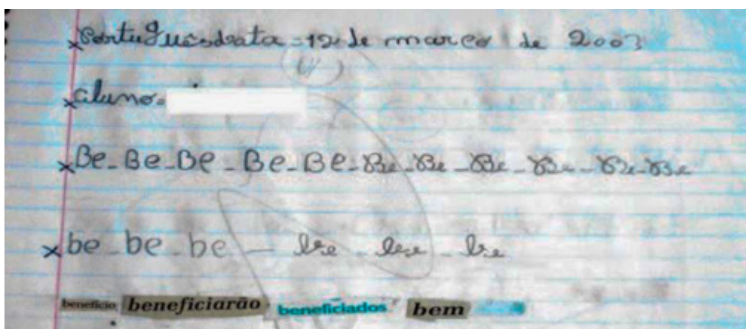 Português data = 12 de março de 2003
aluno =
Be - Be - Be - Be - Be - Be - Be - Be - Be - Be - Be
be - be - be - be - be - be
benefício beneficiarão beneficiados bem